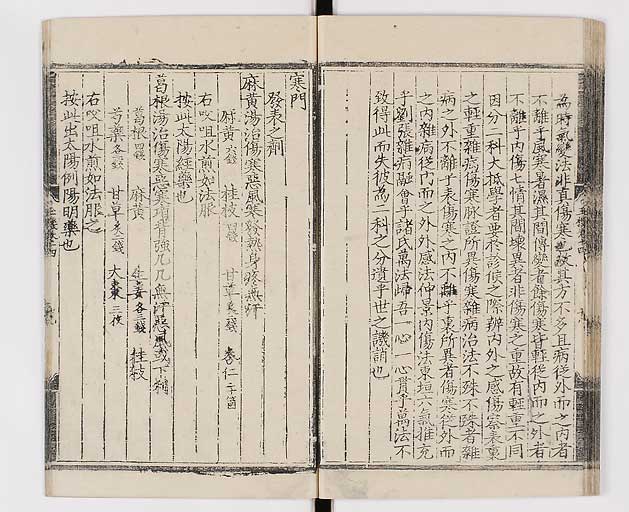 為時氣變法非真傷寒也故其方不多且病從外而之內者
不離乎風寒暑濕其間傳變者餘傷寒皆輕從內而之外者
不離乎內傷七情其間壞異者非傷寒之重故有輕重不同
因分二科大抵學者要於診候之際辨內外之感傷察表裏
之輕重雜病傷寒脉證所異傷寒雜病治法不殊不殊者雜
病之外不離乎表傷寒之內不離乎裏所異者傷寒從外而
之內雜病從內而之外外感法仲景內傷法東垣六氣推充
乎劉張雜病融會乎諸氏萬法歸吾一心一心貫乎萬法不
致得此而失彼為二科之分遺乎世之譏誚也
寒門
發表之劑
麻黃湯治傷寒惡風寒發熱身疼無汗
麻黃 桂枝 甘草 杏仁二十箇
右㕮咀水煎如法服
按此太陽經藥也
葛根湯治傷寒惡寒項背強几几無汗惡風或下利
葛根四錢 麻黃 生姜各三錢 桂枝
芍藥各二錢 甘草炙二錢 大棗三枚
右㕮咀水煎如法服之
按此出太陽例陽明藥也